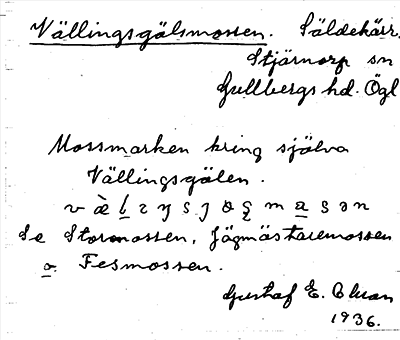 Vällingsgälsmossen. Säldekärr,
Stjärnorp sn
Gullbergs hd. Ögl
Mossmarken kring själva
Vällingsgälen.
Se Stormossen, Jägmästaremossen
o. Fesmossen.
Gustaf E. Clson
1936.